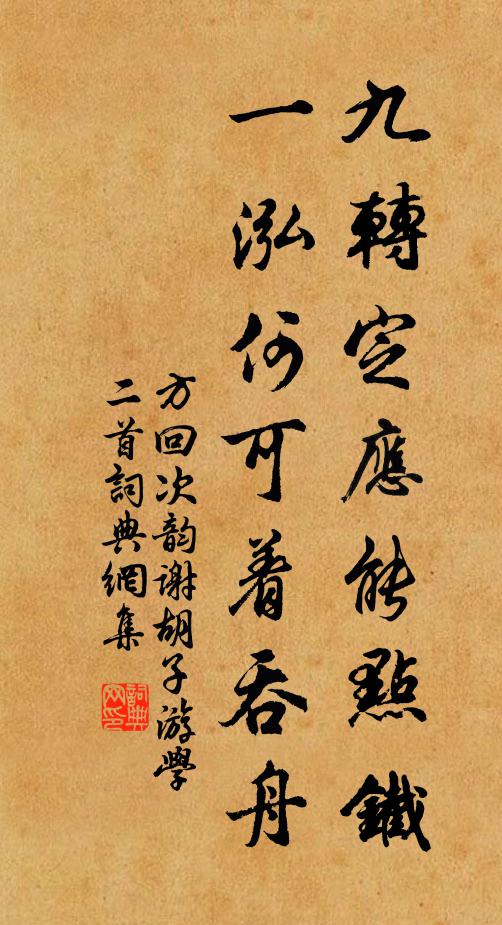 九轉定應能點鐵
一泓何可着吞舟
方回次韵謝胡子游學
二首詞典網集
詞典
网印